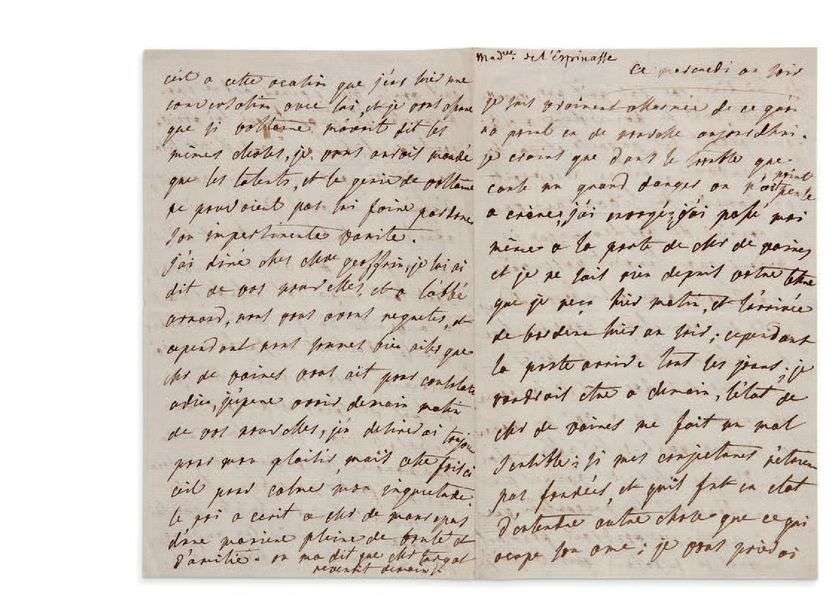 c'est a cette ocation que j'eus hier une
conversation avec lui, et je vous assure
que si voltaire m'avoit dit les
mêmes choses, je vous aurois mandé
que les talents, et le genie de voltaire
ne pouroient pas lui faire pardoner
son impertinente vanite.
j'ai diné ches Mde geoffrin, je lui ai
dit de vos nouvelles, et a l'abbé
arnaud, nous vous avons regreté, et
cependant nous sommes bien aises que
Mr de vaines vous ait pour
adieu, j'espere avoir demain matin
de vos nouvelles, j'en desire
pour mon plaisir, mais cette fois ci
c'est pour calmer mon inquietude.
le roi a ecrit a Mr de maurepas
d'une maniere pleine de bonté et
d'amitie. on m'a dit que Mr turgot
revenoit demain
Madlle de l'Espinasse
ce mercredi au soir
je suis vraiment allarmée de ce qu'il
n'a point eu de nouvelle aujourd'hui.
je crains que dans le trouble que
cause un grand danger on n'ait point pensé
a ecrire, j'ai envoyé, j'ai passé moi
même a la porte de Mr de vaines
et je ne sais rien depuis votre lettre
que je reçu hier matin, et l'arrivée
de hier au soir; cependant
la poste arrive tous les jours; je
voudrois être a demain, l'etat de
Mr de vaines me fait un mal
sensible; si mes conjectures n'etoient
pas fondées, et qu'il fut en etat
d'entendre autre chose que ce qui
ocupe son ame; je vous prierois